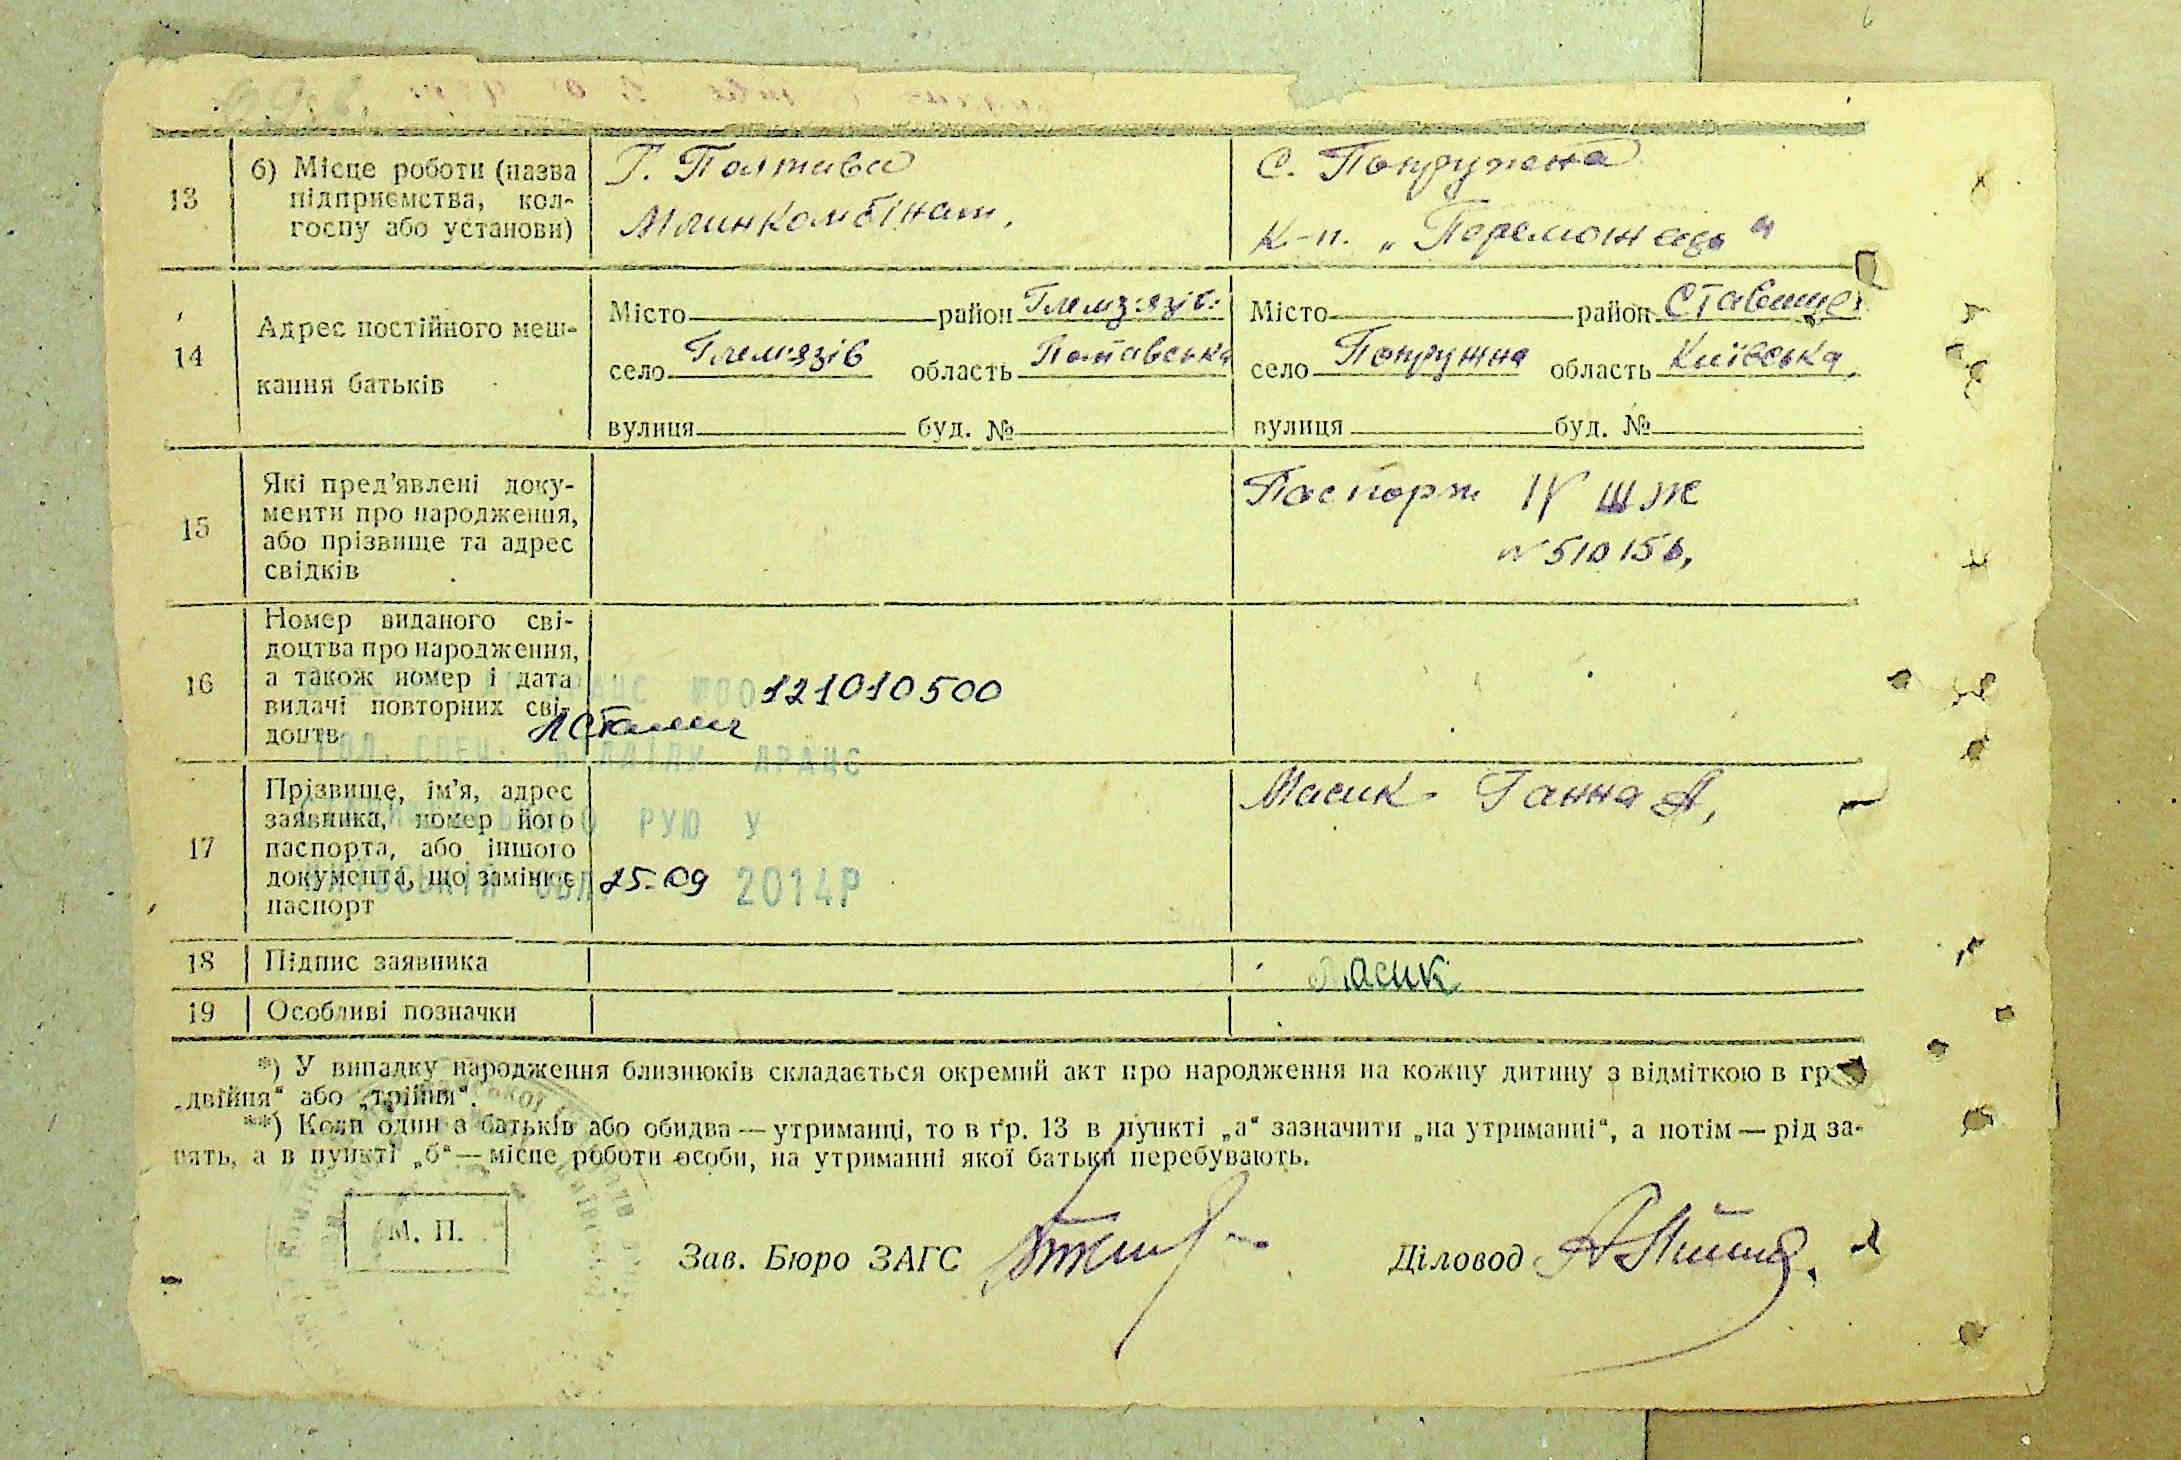 13
б) Місце роботи (назва
підприємства, кол-
госпу або установи)
Г. Полтава
Млинкомбінат,
С. Попружена
К-п. „Переможець“
14
Адрес постійного меш-
кання батьків
Місто район Гельмязів.
село Гельмязів область Полтавська
вулиця буд. №
Місто район Ставище
село Попружна область Київська,
вулиця буд. №
15
Які пред’явлені доку-
менти про народження,
або прізвище та адрес
свідків
Паспорт IV ШЖ
№ 510156,
16
Номер виданого сві-
доцтва про народження,
а також номер і дата
видачі повторних сві-
доцтв
121010500
ГОЛ. СПЕЦ. ВІДДІЛУ ДРАЦС
17
Прізвище, ім’я, адрес
заявника, номер його
паспорта, або іншого
документа, що замінює
паспорт
РУЮ У
25-09 2014Р
Масик Ганна А,
18
Підпис заявника
Масик
19
Особливі позначки
*) У випадку народження близнюків складається окремий акт про народження на кожну дитину з відміткою в гр
„двійня“ або „трійня“.
**) Коли один з батьків або обидва — утриманці, то в гр. 13 в пункті „а“ зазначити „на утриманні“, а потім — рід за-
нять, а в пункті „б“ — місце роботи особи, на утриманні якої батьки перебувають.
М. П.
Зав. Бюро ЗАГС
Діловод